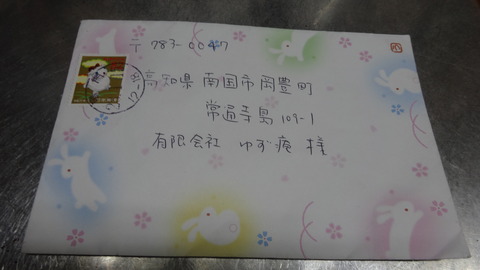 〒783-0047
高知県南国市岡豊町
常通寺島109-1
有限会社 ゆず庵 様